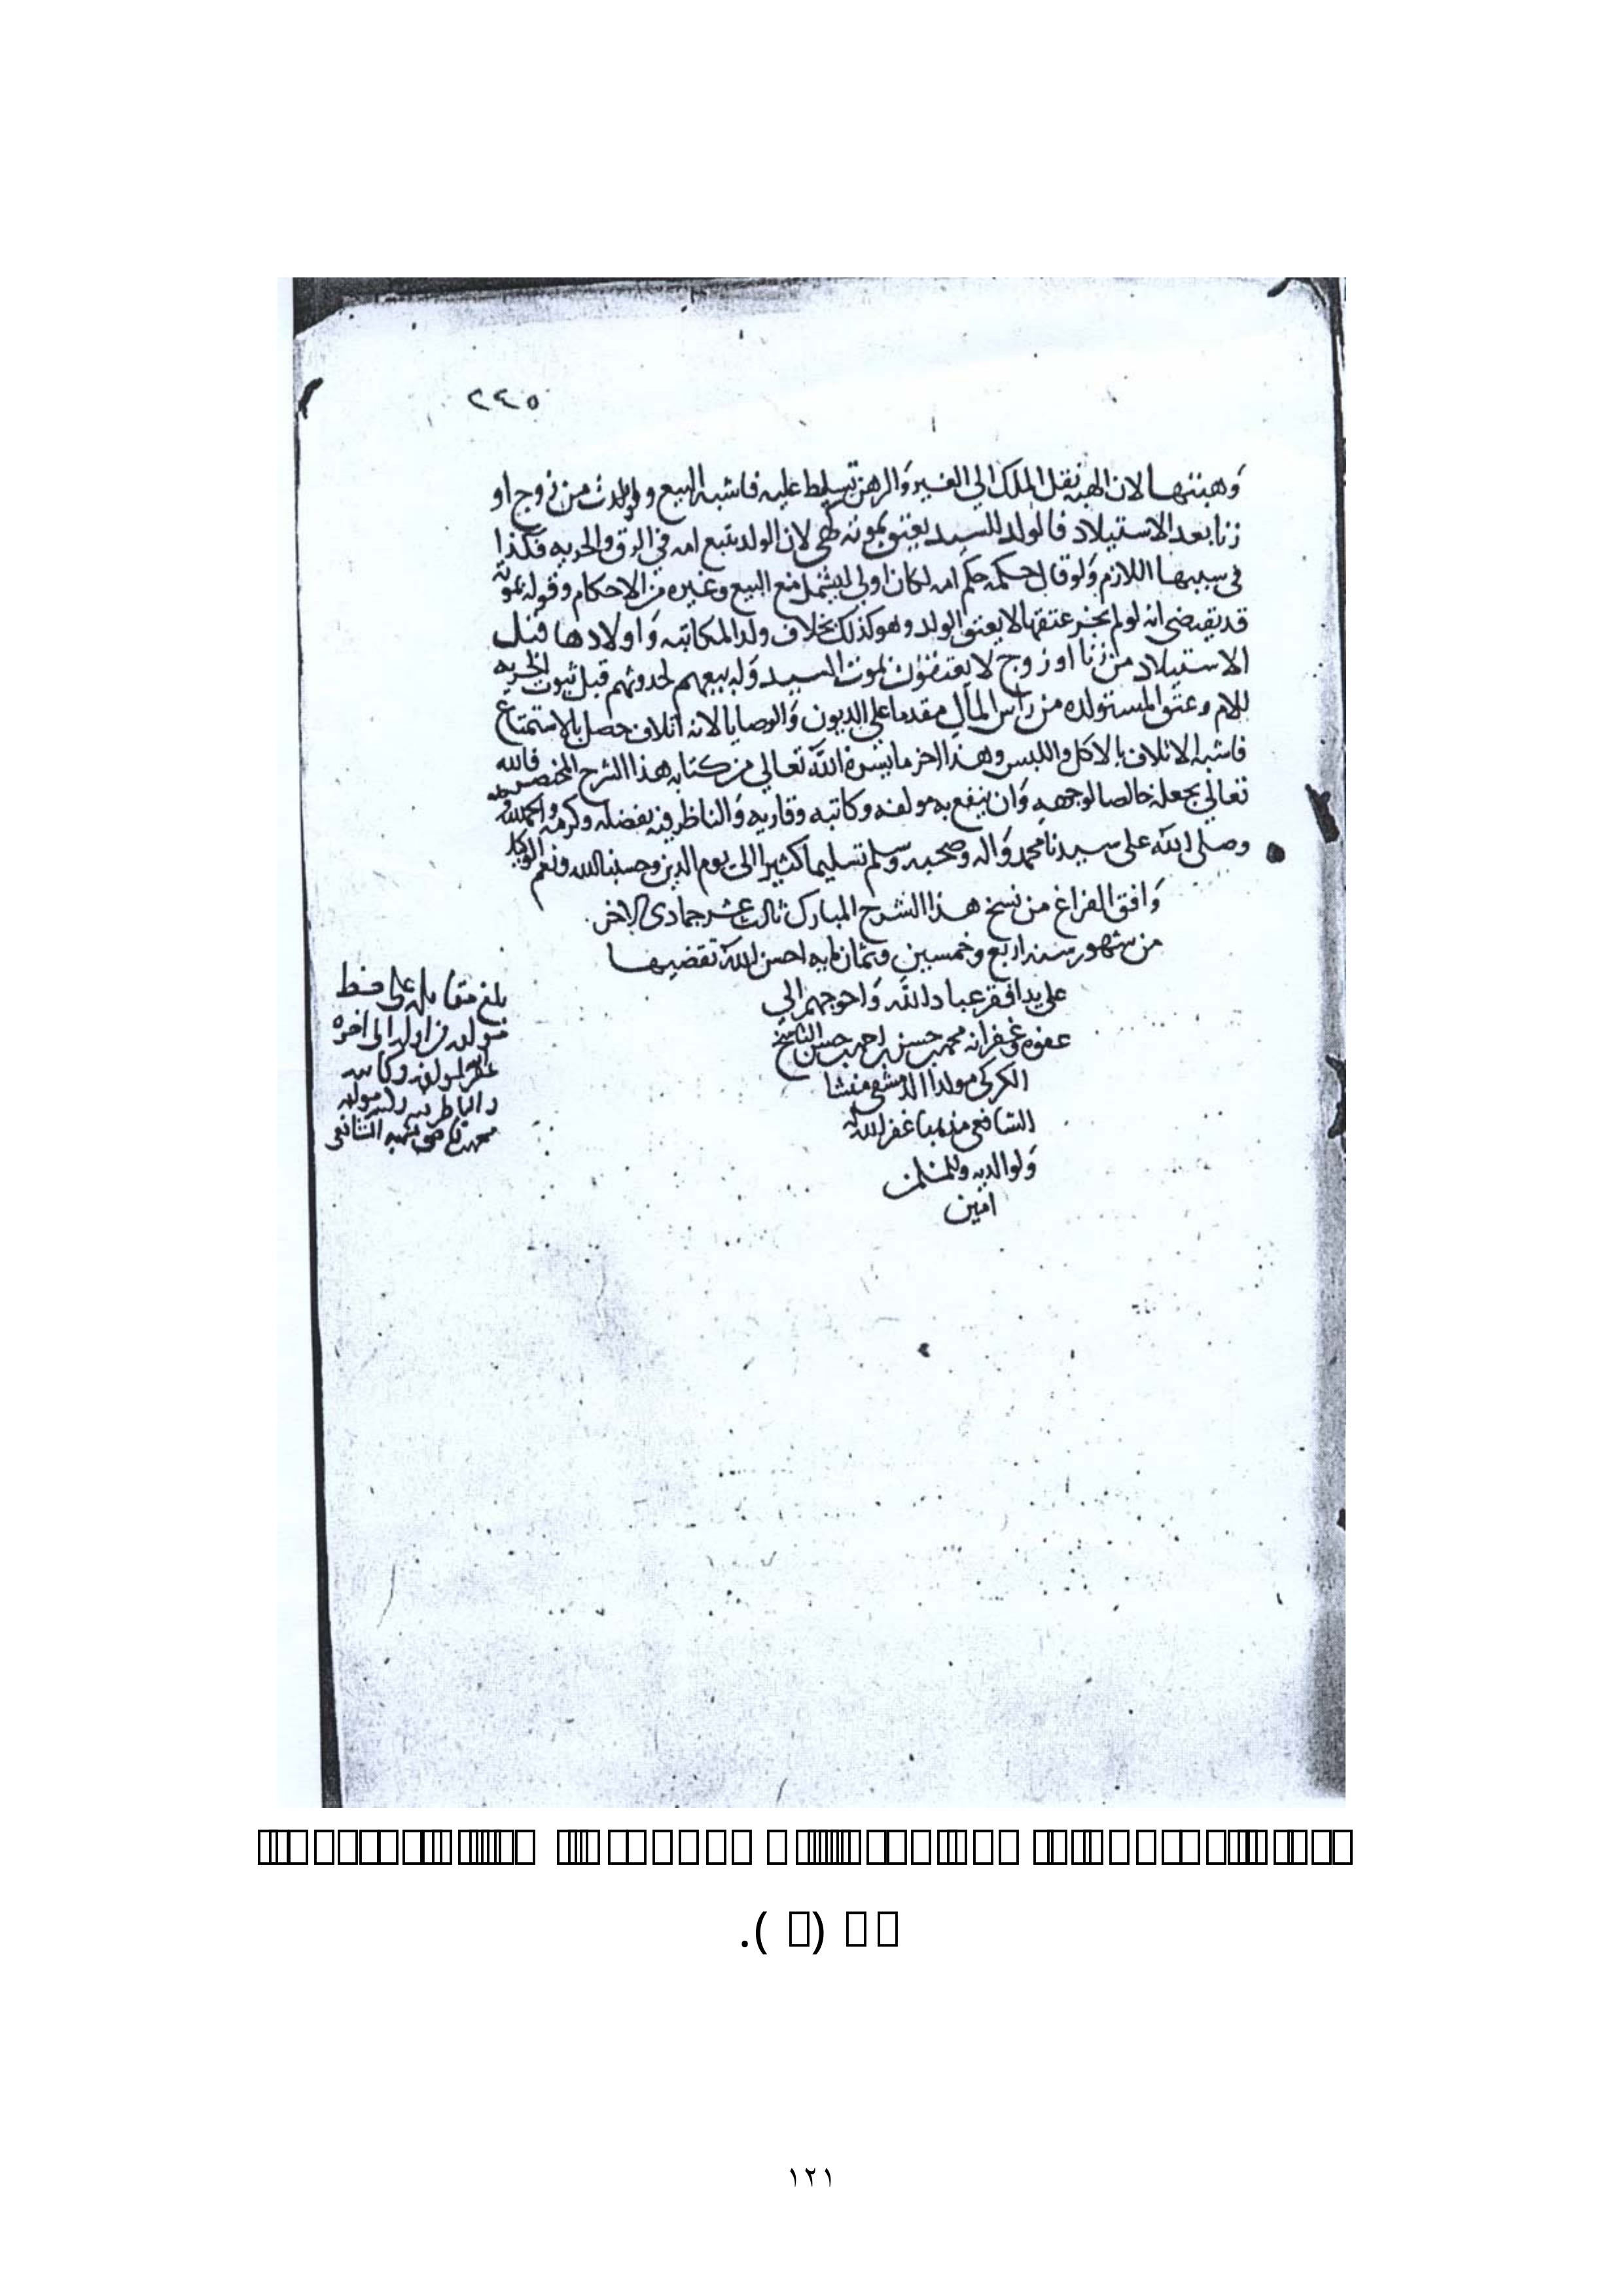 ٢٤٥
وهبتها لان الهبه نقل الملك الي الغير والرهن تسليط عليه فاشبه البيع ولو ولدت من زوج او
زنا بعد الاستيلاد فالولد للسيد يعتق بموته كهي لان الولد يتبع امه في الرق والحريه فكذا
في سببها اللازم ولو قال حكمه حكم امه لكان اولي ليشمل منع البيع وغيره من الاحكام وقوله بموته
قد يقتضي انه لو لم ينجز عتقها لا يعتق الولد وهو كذلك بخلاف ولد المكاتبه واولادها قبل
الاستيلاد من زنا او زوج لا يعتقون بموت السيد وله بيعهم لحدوثهم قبل ثبوت الحريه
للام وعتق المستولده من راس المال مقدما علي الديون والوصايا لانه اتلاف حصل بالاستمتاع
فاشبه الاتلاف بالاكل واللبس وهذا اخر ما يسره الله تعالي من كتابه هذا الشرح المختصر فالله
تعالي يجعله خالصا لوجهه وان ينفع به مولفه وكاتبه وقاريه والناظر فيه بفضله وكرمه والحمد لله
وصلي الله علي سيدنا محمد واله وصحبه وسلم تسليما كثيرا الي يوم الدين وحسبنا الله ونعم الوكيل
وافق الفراغ من نسخ هذا الشرح المبارك ثالث عشر جمادي الاخر
من شهور سنه اربع وخمسين وثمان مايه احسن الله تقضيها
علي يد افقر عباد الله واحوجهم الي
عفوه وغفرانه محمد بن حسن بن احمد بن حسن الناسخ
الكركي مولدا الدمشقي منشا
الشافعي مذهبا غفر الله له
ولوالديه وللمسلمين
امين
بلغ مقابله علي خط
مولفه من اوله الي اخره
غفر الله لمولفه وكاتبه
والناظر فيه
محمد بن قاضي شهبه الشافعي
( ).
١٢١